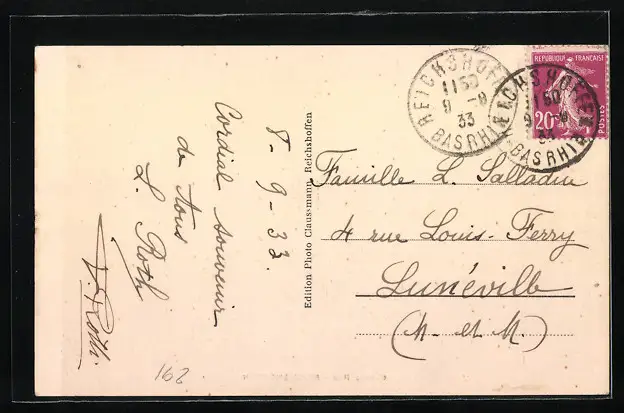 8-9-33.
Cordial souvenir
de tous
L. Roth
Roth.
162
Edition Photo Claus-mann, Reichshoffen
REICHSHOFFEN
11 50
9 -9
33
BAS RHIN
REICHSHOFFEN
11 50
9 -9
33
BAS RHIN
REPUBLIQUE FRANÇAISE
20c
POSTES
Famille L. Salladin
4 rue Louis-Ferry
Lunéville
(M. et M.)